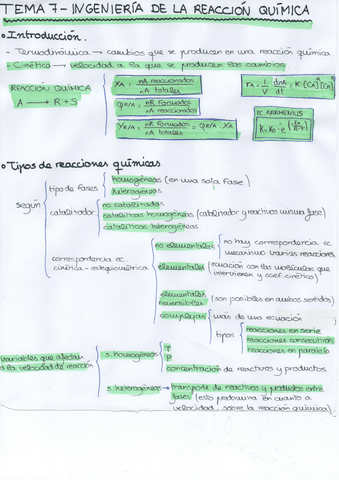 TEMA 7 - INGENIERÍA DE LA REACCIÓN QUÍMICA
• Introducción.
- Termodinámica → cambios que se producen en una reacción química.
- Cinética → velocidad a la que se producen los cambios
REACCIÓN QUÍMICA
A → R + S
XA = nA reaccionados / nA totales
φR/A = nR formados / nA reaccionados
YR/A = nR formados / nA totales = φR/A · XA
EC. ARRHENIUS
• Tipos de reacciones químicas
según
tipo de fases
homogéneas (en una sola fase)
heterogéneas
catalizador
no catalizadas
catalíticas homogéneas (catalizador y reactivos misma fase)
catalíticas heterogéneas
correspondencia ec. cinética - estequiométrica
no elementales
no hay correspondencia ec.
mecanismo varias reacciones
elementales (ecuación con las moléculas que
intervienen y coef. cinético)
elementales
reversibles (son posibles en ambos sentidos)
complejas
más de una ecuación
tipos
reacciones en serie
reacciones consecutivas
reacciones en paralelo
variables que afectan
a la velocidad de reacción
s. homogéneos
T
P
concentración de reactivos y productos
s. heterogéneos → transporte de reactivos y productos entre
fases (esto predomina en cuanto a
velocidad, sobre la reacción química).